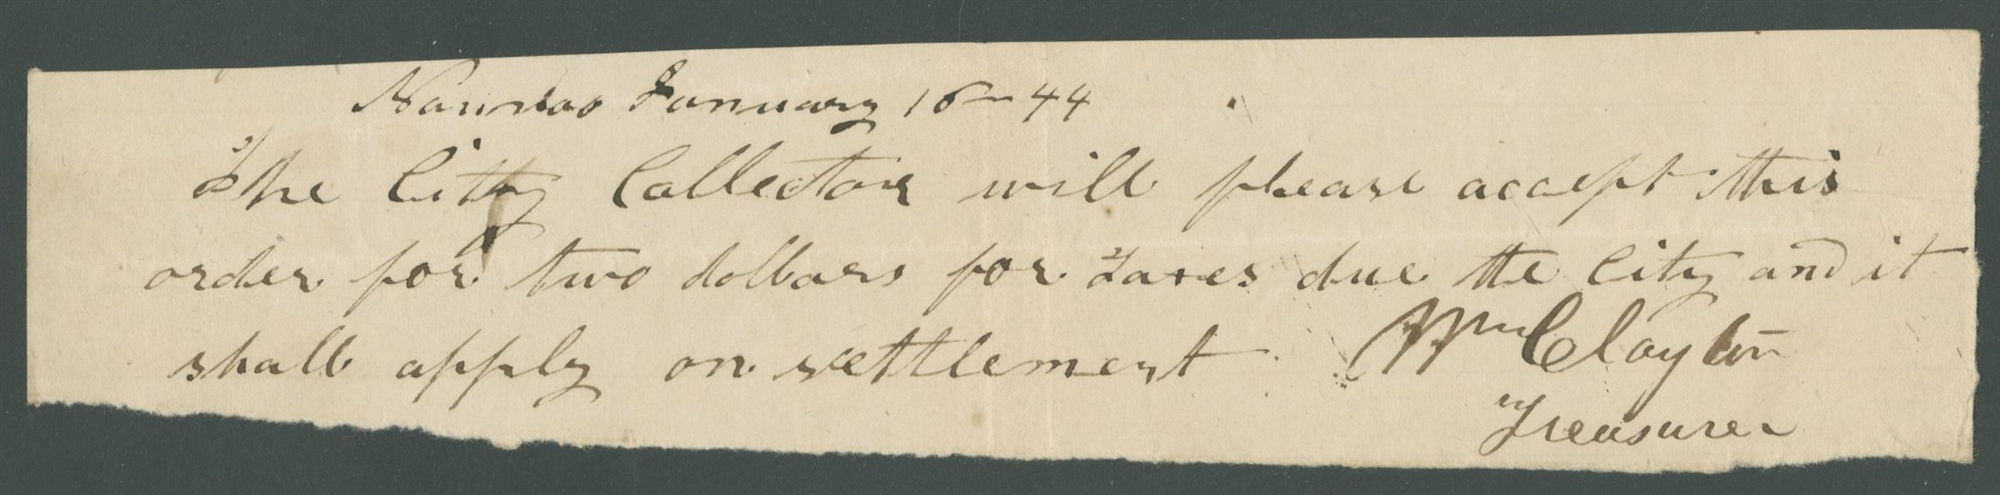 Nauvoo January 16 – 44
The City Collector will please accept this
order for two dollars for Taxes due the City and it
shall apply on settlement Wm Clayton
Treasurer